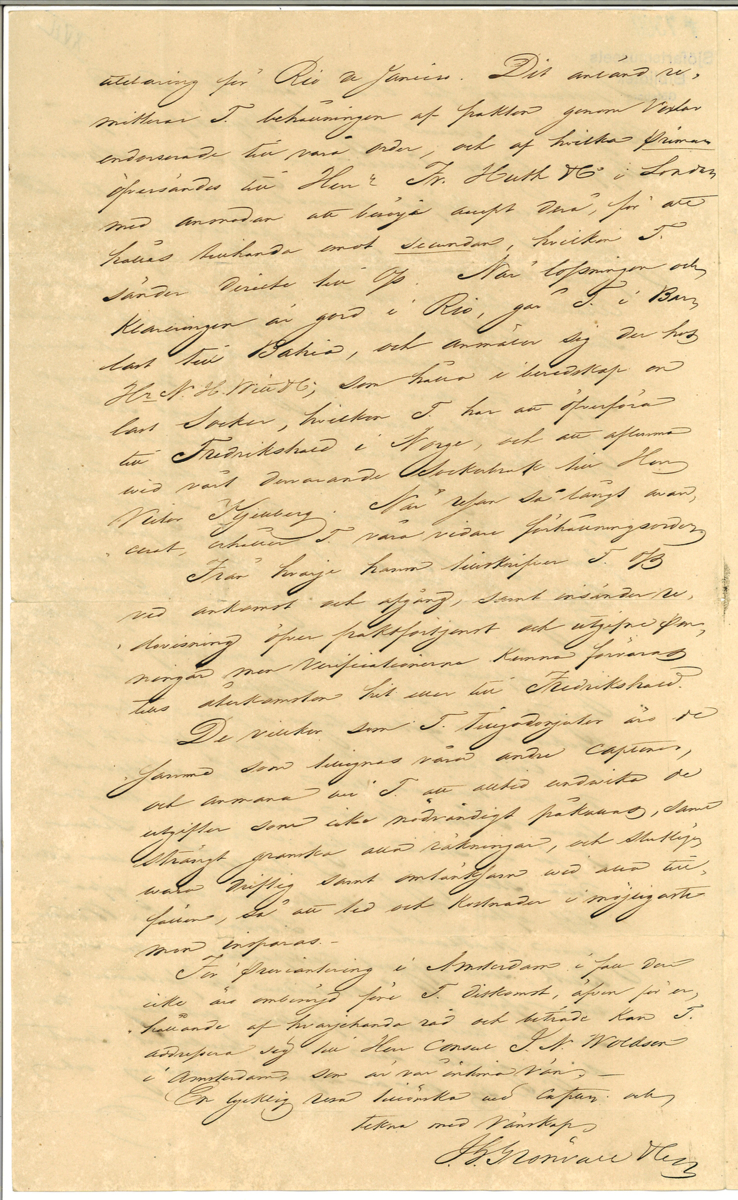 utclaring för Rio de Janeiro. Dit anländ re,
mitterar T. behållningen af frakten genom Vexlar
endosserade till våra order, och af hvilka prima
öfversändes till Herr Fr. Huth & C i London
med anmodan att besörja accept derå, för att
hållas tillhanda emot secundan, hvilken T.
sänder directe till Oss. När lossningen och
Klareringen är gjord i Rio, går T. i Bar,
last till Bahia, och anmäler sig der hos
Hr. N. H. Witt & C, som hålla i beredskap en
last Socker, hvilken T. har att öfverföra
till Fredrikshald i Norge, och att aflemna
wid vårt dervarande Sockerbruk till Herr
Victor Kjellberg. När resan så långt avan,
cerat, erhåller T. våra vidare förhållningsorder
Från hvarje hamn tillskrifver T. Oss
ved ankomst och afgång, samt insänder re,
dovisning öfver fraktförtjenst och utgifne pen,
ningar men Verificationerna kunna förvaras
tills återkomsten hit eller till Fredrikshald.
De villkor som T. tillgodonjuter äro de
samma som tillegnas våra andre Captener,
och anmana vi T. att alltid undwika de
utgifter som icke nödvändigt påkallas, samt
strängt granska alla räkningar, och slutligen
wara driftig samt omtänksam wid alla till,
fällen, så att tid och kostnader i möjligaste
mon insparas. –
För proviantering i Amsterdam i fall den
icke äro ombesörjd före T. ditkomst, äfven för er,
hållande af hvarjehanda råd och biträde kan T.
addressera sig till Herr Consul J. N. Woldsen
i Amsterdam, som är vår intima Vän, –
En lycklig resa tillönska wi Capten och
tekna med Vänskap
J. G. Grönvall & C